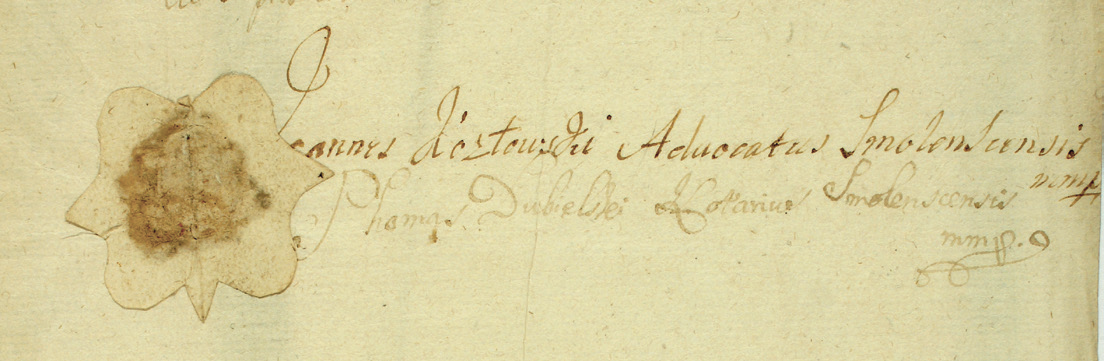 Joannes Kozłowski Advocatus Smolenscensis
mmp
Thomas Dubielski Notarius Smolenscensis
mmp.